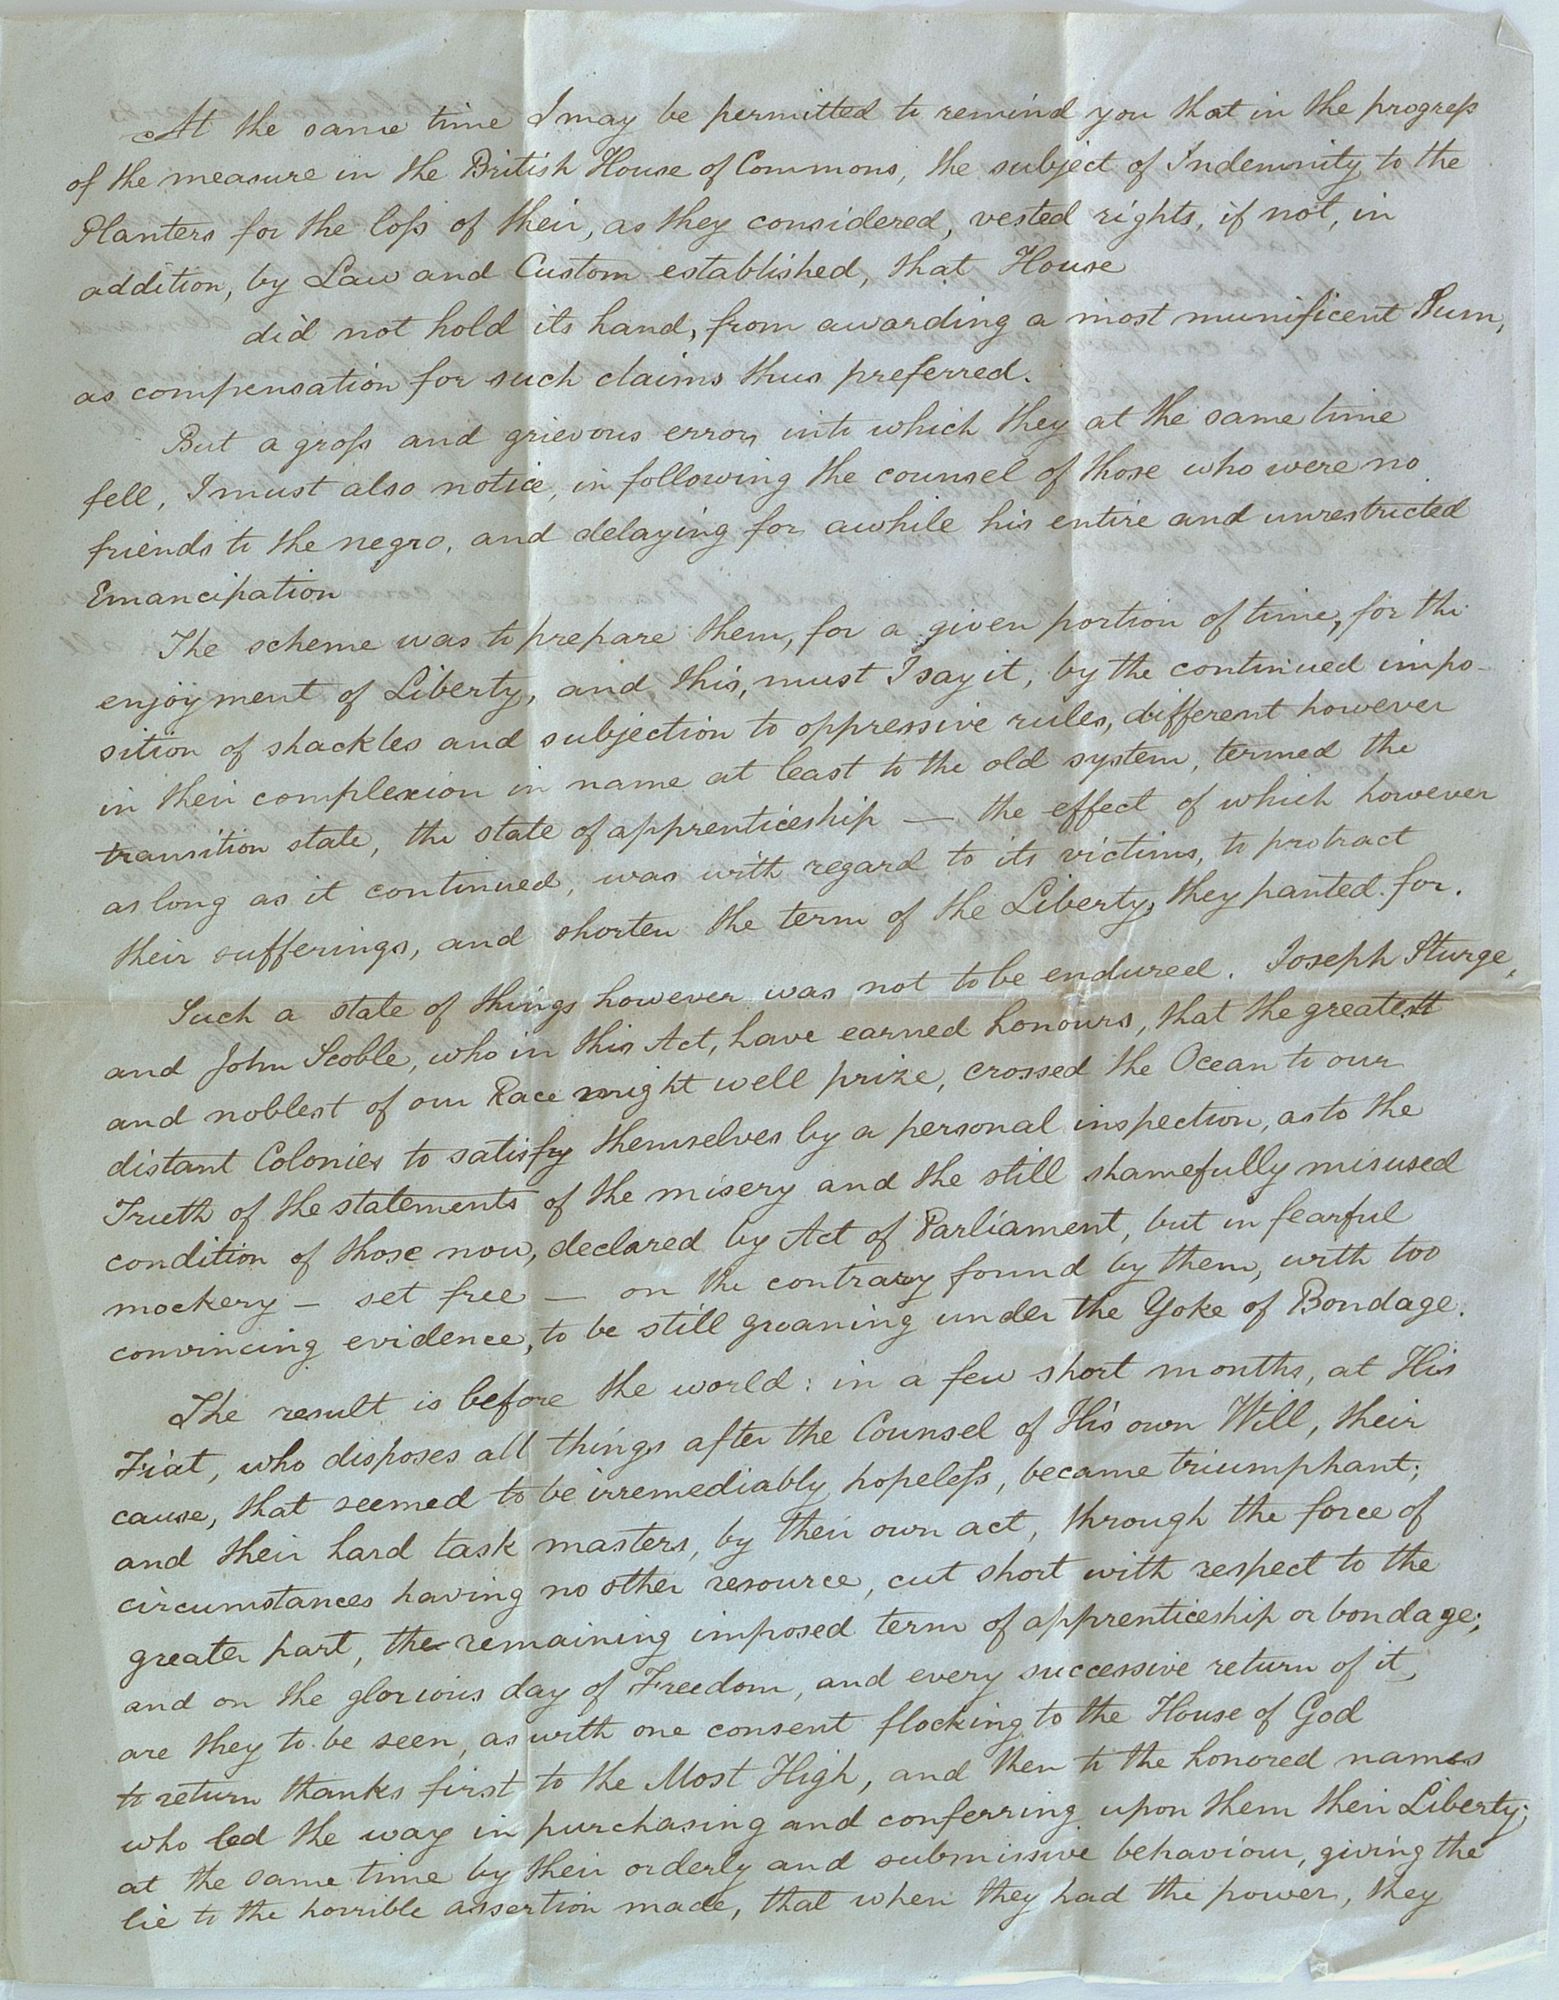 At the same time I may be permitted to remind you that in the progress
of the measure in the British House of Commons, the subject of Indemnity to the
Planters for the loss of their, as they considered, vested rights, if not, in
addition, by Law and Custom established, that House
did not hold its hand, from awarding a most munificent Sum,
as compensation for such claims thus preferred.
But a gross and grievous error, into which they at the same time
fell, I must also notice, in following the counsel of those who were no
friends to the negro, and delaying for awhile his entire and unrestricted
Emancipation
The scheme was to prepare them, for a given portion of time, for the
enjoyment of Liberty, and this, must I say it, by the continued impo-
sition of shackles and subjection to oppressive rules, different however
in their complexion in name at least to the old system, termed the
transition state, the state of apprenticeship — the effect of which however
as long as it continued, was with regard to its victims, to protract
their sufferings, and shorten the term of the Liberty, they panted for.
Such a state of things however was not to be endured. Joseph Sturge,
and John Scoble, who in this Act, have earned honours, that the greatest
and noblest of our Race might well prize, crossed the Ocean to our
distant Colonies to satisfy themselves by a personal inspection, as to the
Truth of the statements of the misery and the still shamefully misused
condition of those now, declared by Act of Parliament, but in fearful
mockery — set free — on the contrary found by them, with too
convincing evidence, to be still groaning under the Yoke of Bondage.
The result is before the world: in a few short months, at His
Fiat, who disposes all things after the Counsel of His own Will, their
cause, that seemed to be irremediably hopeless, became triumphant;
and their hard task masters, by their own act, through the force of
circumstances having no other resource, cut short with respect to the
greater part, the remaining imposed term of apprenticeship or bondage;
and on the glorious day of Freedom, and every successive return of it,
are they to be seen, as with one consent flocking to the House of God
to return thanks first to the Most High, and then to the honored names
who led the way in purchasing and conferring upon them their Liberty;
at the same time by their orderly and submissive behaviour, giving the
lie to the horrible assertion made, that when they had the power, they